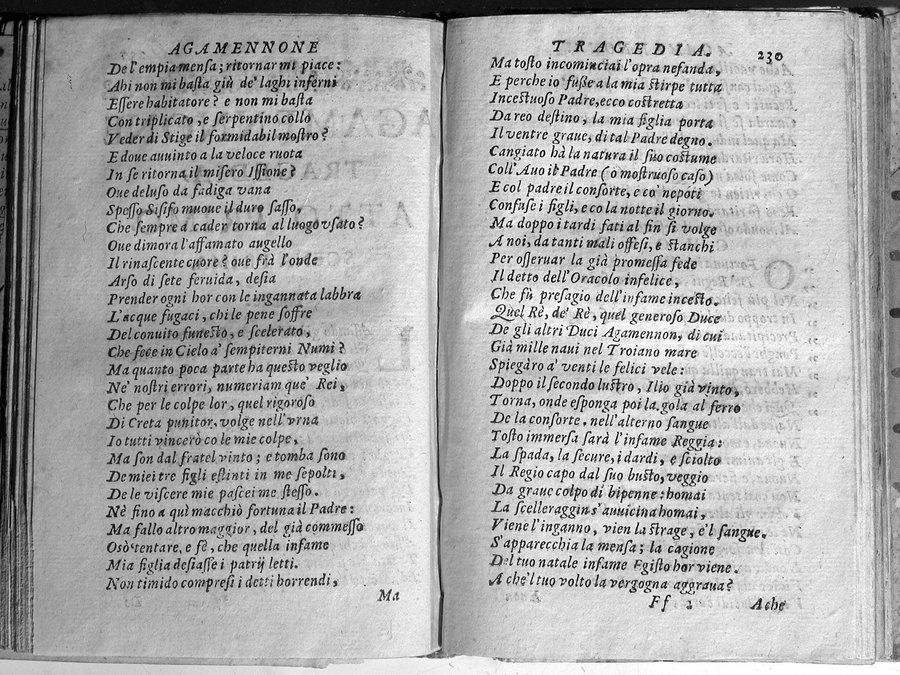 AGAMENNONE
De l'empia mensa; ritornar mi piace:
Ahi non mi basta giù de' laghi inferni
Essere habitatore? e non mi basta
Con triplicato, e serpentino collo
Veder di Stige il formidabil mostro?
E doue auuinto a la veloce ruota
In se ritorna il misero Issione?
Oue deluso da fadiga vana
Spesso Sisifo muoue il duro sasso,
Che sempre a cader torna al luogo vsato?
Oue dimora l'affamato augello
Il rinascente cuore? oue frà l'onde
Arso di sete feruida, desia
Prender ogni hor con le ingannata labbra
L'acque fugaci, chi le pene soffre
Del conuito funesto, e scelerato,
Che fece in Cielo a' sempiterni Numi?
Ma quanto poca parte ha questo veglio
Ne' nostri errori, numeriam que' Rei,
Che per le colpe lor, quel rigoroso
Di Creta punitor. volge nell'vrna
Io tutti vincerò co le mie colpe,
Ma son dal fratel vinto; e tomba sono
De miei tre figli estinti in me sepolti,
De le viscere mie pascei me stesso.
Nè fino a quì macchiò fortuna il Padre:
Ma fallo altro maggior, del già commesso
Osò tentare, e fè, che quella infame
Mia figlia desiasse i patrij letti.
Non timido compresi i detti horrendi,
Ma
TRAGEDIA. 230
Ma tosto incominciai l'opra nefanda,
E perche io fusse a la mia stirpe tutta
Incestuoso Padre, ecco costretta
Da reo destino, la mia figlia porta
Il ventre graue, di tal Padre degno.
Cangiato hà la natura il suo costume
Coll'Auo il Padre (o mostruoso caso)
E col padre il consorte, e co' nepoti
Confuse i figli, e co la notte il giorno.
Ma doppo i tardi fati al fin si volge
A noi, da tanti mali offesi, e stanchi
Per osseruar la già promessa fede
Il detto dell'Oracolo infelice,
Che fù presagio dell'infame incesto.
Quel Rè, de' Rè, quel generoso Duce
De gli altri Duci Agamennon, di cui
Già mille naui nel Troiano mare
Spiegàro a' venti le felici vele:
Doppo il secondo lustro, Ilio già vinto,
Torna, onde esponga poi la gola al ferro
De la consorte. nell'alterno sangue
Tosto immersa sarà l'infame Reggia:
La spada, la secure, i dardi, e sciolto
Il Regio capo dal suo busto, veggio
Da graue colpo di bipenne: homai
La scelleraggin s'auuicina homai,
Viene l'inganno, vien la strage, e'l sangue.
S'apparecchia la mensa; la cagione
Del tuo natale infame Egisto hor viene.
A che'l tuo volto la vergogna aggraua?
Ff 2 A che